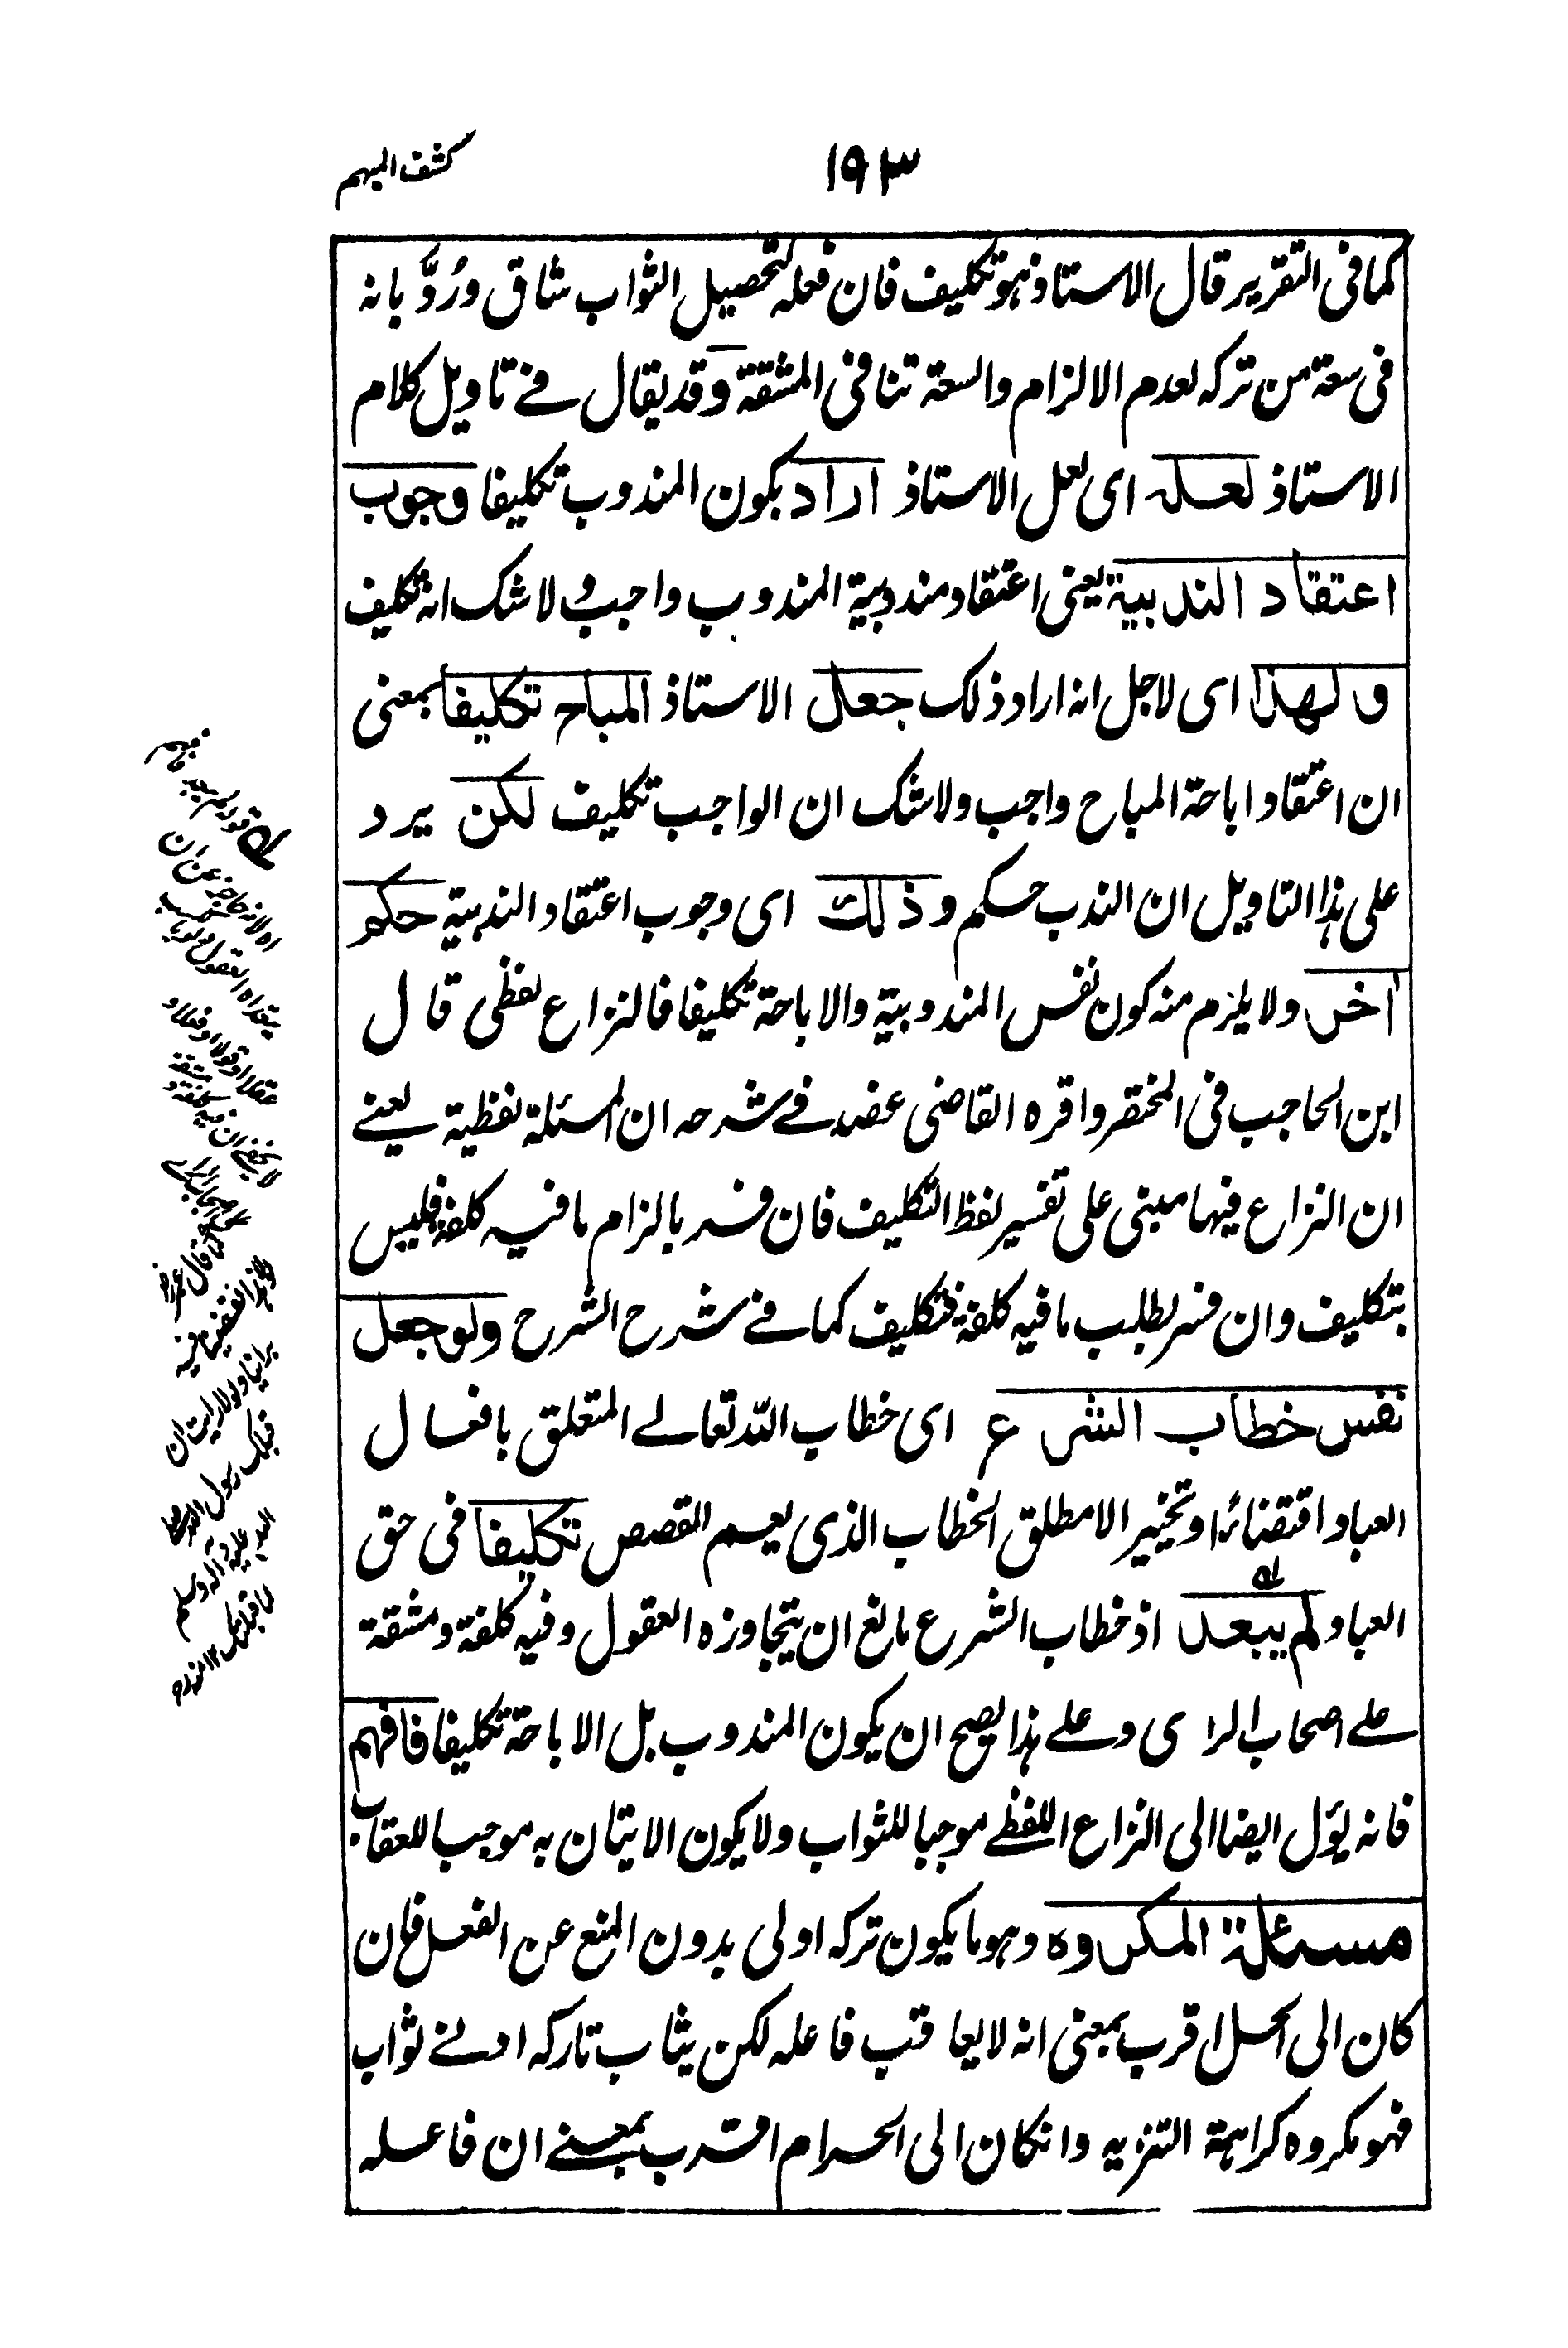 ١٩٣
كشف المبهم
كما فى التقرير قال الاستاذ هو تكليف فان فعله لتحصيل الثواب شاق ورُدَّ بانه
فى سعة من تركه لعدم الالزام والسعة تنافى المشقة وقد يقال فے تاويل كلام
الاستاذ لعله اى لعل الاستاذ اراد بكون المندوب تكليفا وجوب
اعتقاد الندبية يعنى اعتقاد مندوبية المندوب واجب ولا شك انه تكليف
ولهذا اى لاجل انه اراد ذلك جعل الاستاذ المباح تكليفا بمعنى
ان اعتقاد اباحة المباح واجب ولا شك ان الواجب تكليف لكن يرد
على هذا التاويل ان الندب حكم وذلك اى وجوب اعتقاد الندبية حكم
اخر ولا يلزم منه كون نفس المندوبية والاباحة تكليفا فالنزاع لفظى قال
ابن الحاجب فى المختصر واقره القاضى عضد فے شرحه ان المسئلة لفظية يعنے
ان النزاع فيها مبنى على تفسير لفظ التكليف فان فسر بالزام ما فيه كلفة فليس
بتكليف وان فسر بطلب ما فيه كلفة فتكليف كما فے شرح الشرح ولو جعل
نفس خطاب الشرع اى خطاب الله تعالے المتعلق بافعال
العباد اقتضائً او تخيير الا مطلق الخطاب الذى يعم القصص تكليفا فى حق
العباد لم يبعد اذ خطاب الشرع مانع ان يتجاوزه العقول وفيه كلفة ومشقة
علے اصحاب الراى وعلے هذا يصح ان يكون المندوب بل الاباحة تكليفا فافهم
فانه يؤل ايضا الى النزاع اللفظے موجبا للثواب ولا يكون الاتيان به موجبا للعقاب
مسئلة المكروه وهو ما يكون تركه اولى بدون المنع عن الفعل فان
كان الى الحل اقرب بمعنى انه لا يعاقب فاعله لكن يثاب تاركه ادنے ثواب
فهو مكروه كراهة التنزيه وانكان الى الحرام اقرب بمعنے ان فاعله
قوله لم يبعد فافهم
عقلا او قولا او فعلا و
لا يخفے ان فيه كلفة و مشقة
علے اصحاب الراے
كما قال عمر رض
رسول الله صلے
الله عليه وآله وسلم
ما قبلتك ١٢ منه